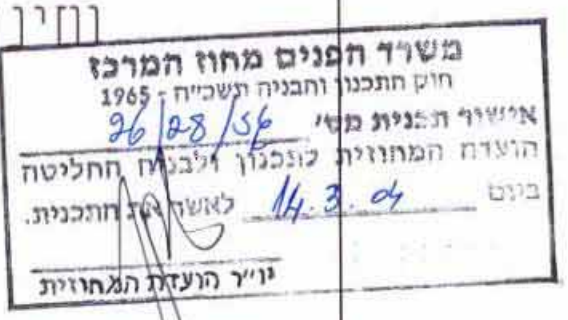 משרד הפנים מחוז המרכז
חוק התכנון והבניה תשכ"ה - 1965
אישור תכנית מס' 26/28/56
הועדה המחוזית לתכנון ולבניה החליטה
ביום 14.3.04 לאשר את התכנית.
יו"ר הועדה המחוזית